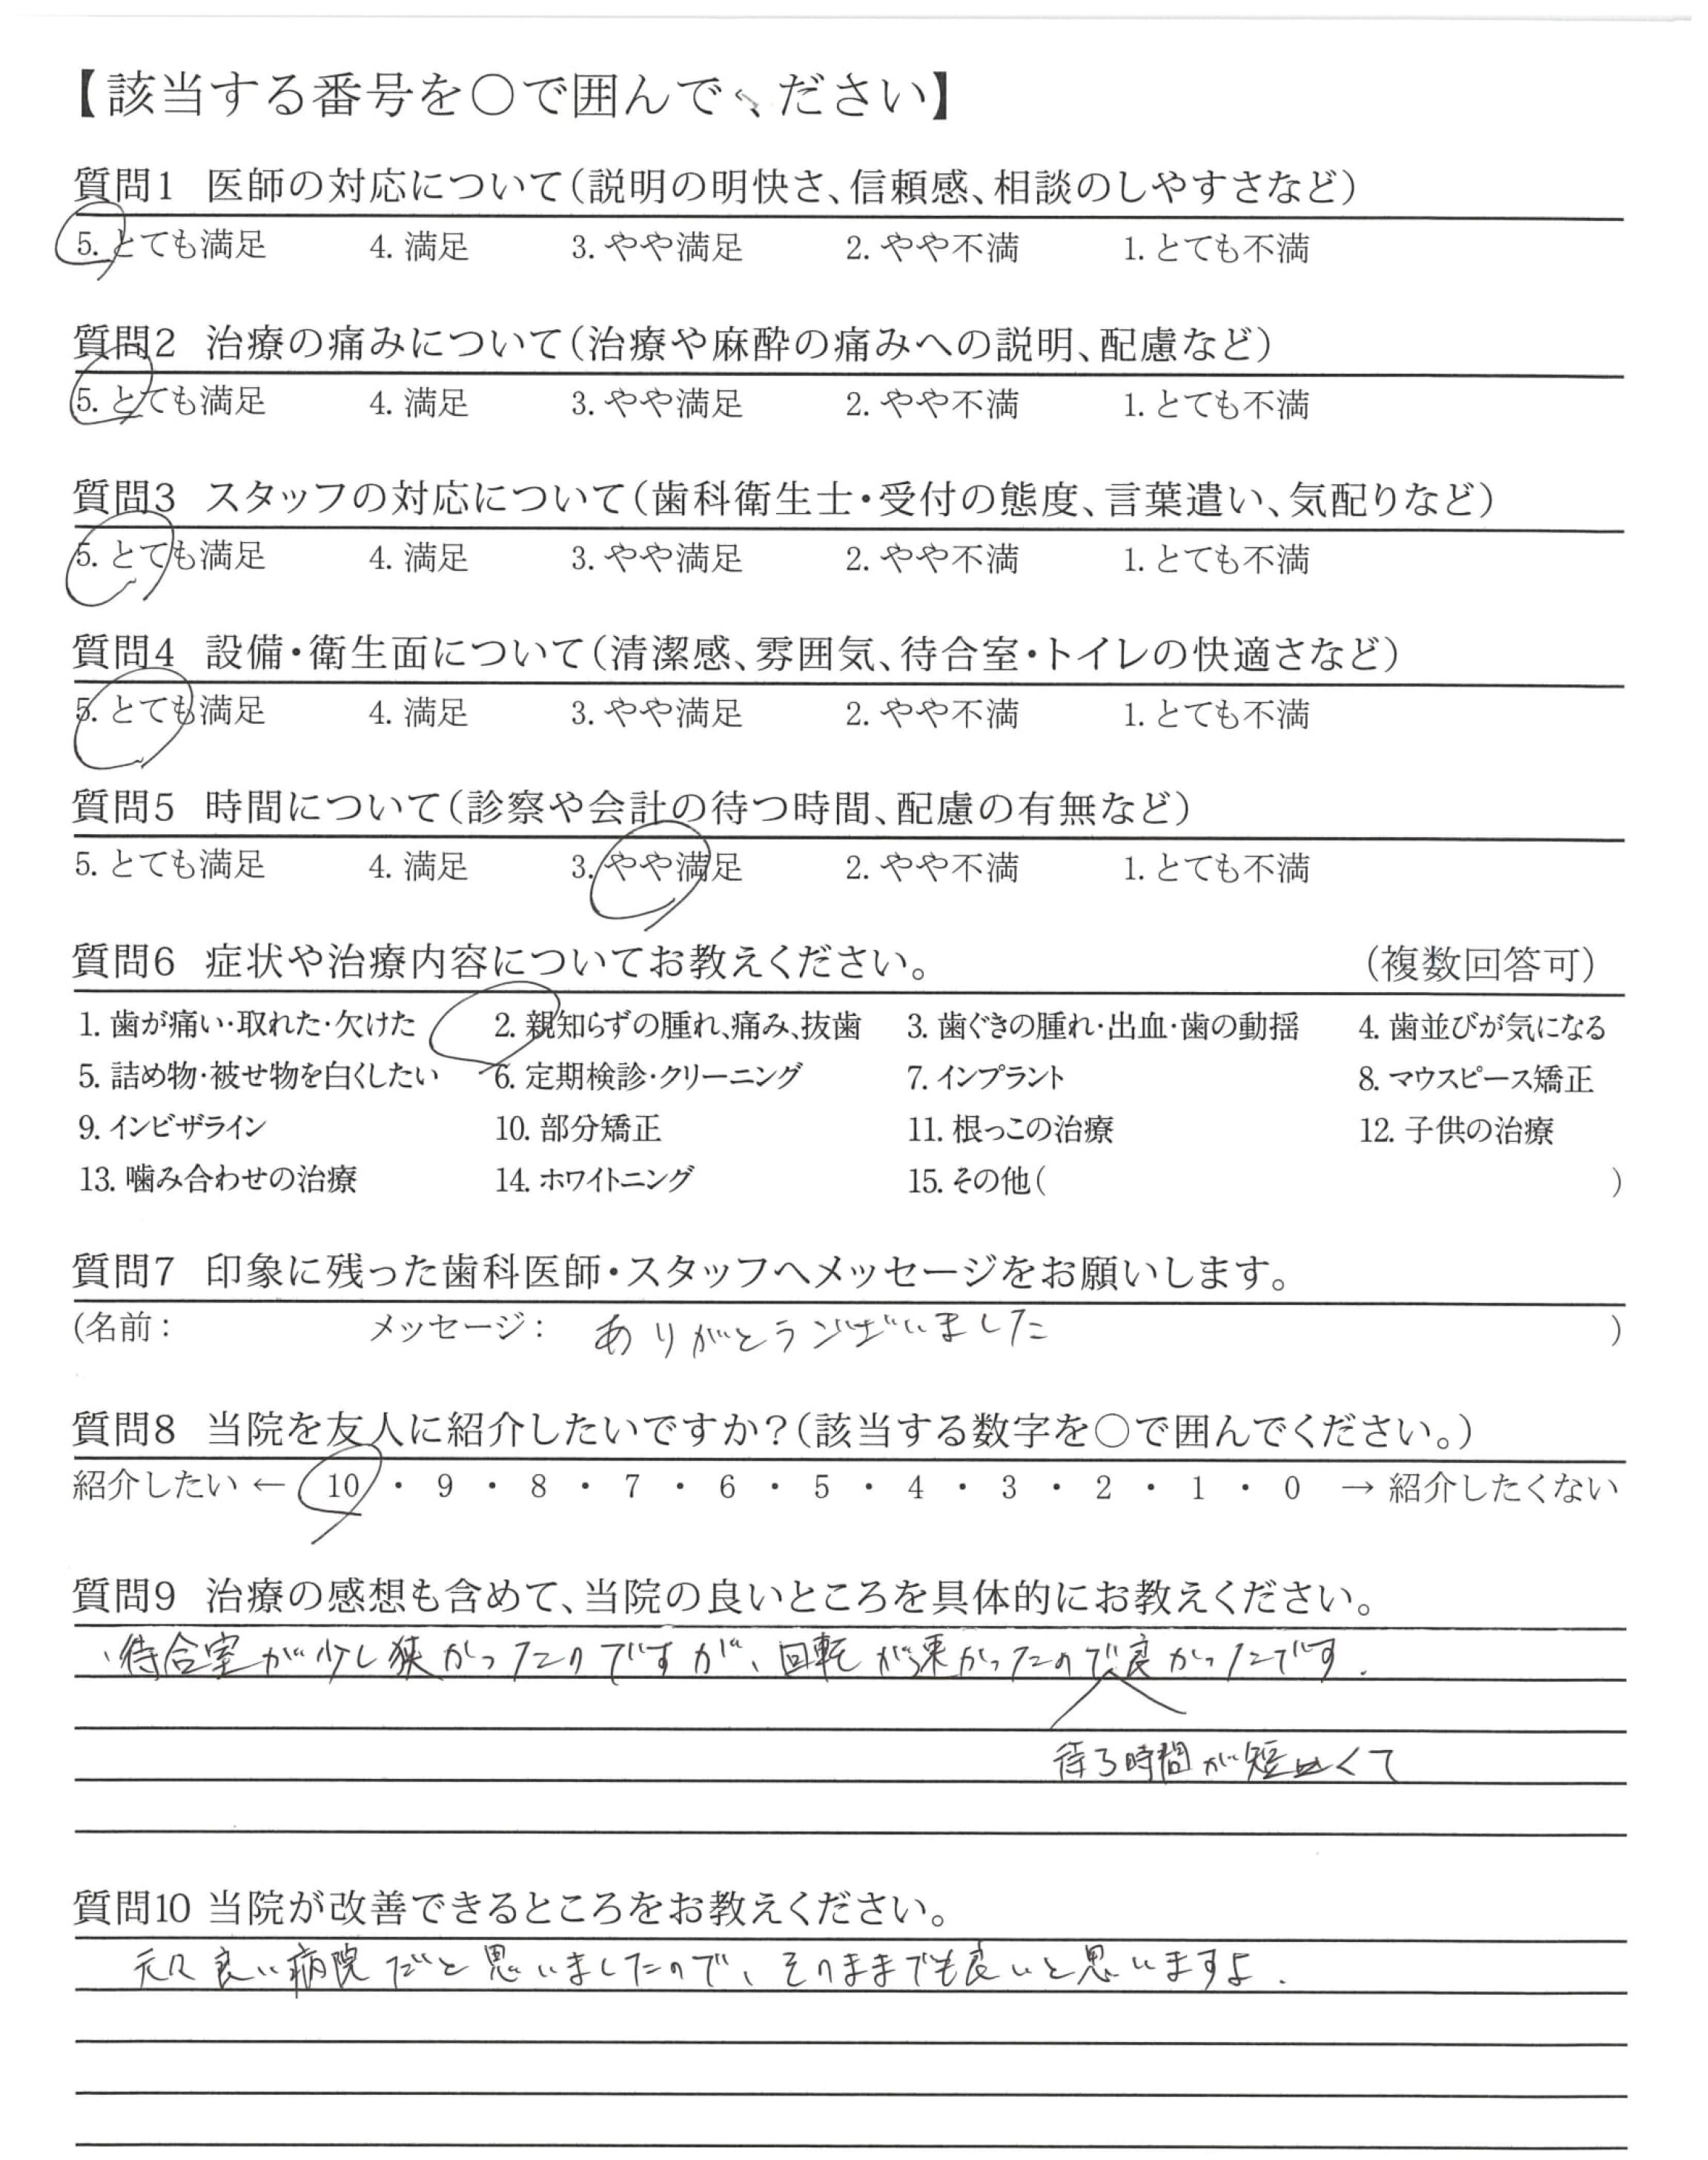 【該当する番号を○で囲んでください】
質問1 医師の対応について(説明の明快さ、信頼感、相談のしやすさなど)
5. とても満足 4. 満足 3. やや満足 2. やや不満 1. とても不満
質問2 治療の痛みについて(治療や麻酔の痛みへの説明、配慮など)
5. とても満足 4. 満足 3. やや満足 2. やや不満 1. とても不満
質問3 スタッフの対応について(歯科衛生士・受付の態度、言葉遣い、気配りなど)
5. とても満足 4. 満足 3. やや満足 2. やや不満 1. とても不満
質問4 設備・衛生面について(清潔感、雰囲気、待合室・トイレの快適さなど)
5. とても満足 4. 満足 3. やや満足 2. やや不満 1. とても不満
質問5 時間について(診察や会計の待つ時間、配慮の有無など)
5. とても満足 4. 満足 3. やや満足 2. やや不満 1. とても不満
質問6 症状や治療内容についてお教えください。 (複数回答可)
1. 歯が痛い・取れた・欠けた 2. 親知らずの腫れ、痛み、抜歯 3. 歯ぐきの腫れ・出血・歯の動揺 4. 歯並びが気になる
5. 詰め物・被せ物を白くしたい 6. 定期検診・クリーニング 7. インプラント 8. マウスピース矯正
9. インビザライン 10. 部分矯正 11. 根っこの治療 12. 子供の治療
13. 噛み合わせの治療 14. ホワイトニング 15. その他( )
質問7 印象に残った歯科医師・スタッフへメッセージをお願いします。
(名前: メッセージ: ありがとうございました )
質問8 当院を友人に紹介したいですか?(該当する数字を○で囲んでください。)
紹介したい ← 10 ・ 9 ・ 8 ・ 7 ・ 6 ・ 5 ・ 4 ・ 3 ・ 2 ・ 1 ・ 0 → 紹介したくない
質問9 治療の感想も含めて、当院の良いところを具体的にお教えください。
・待合室が少し狭かったのですが、回転が速かったので良かったです.
待つ時間が短くて
質問10 当院が改善できるところをお教えください。
元々良い病院だと思いましたので、そのままでも良いと思いますよ.